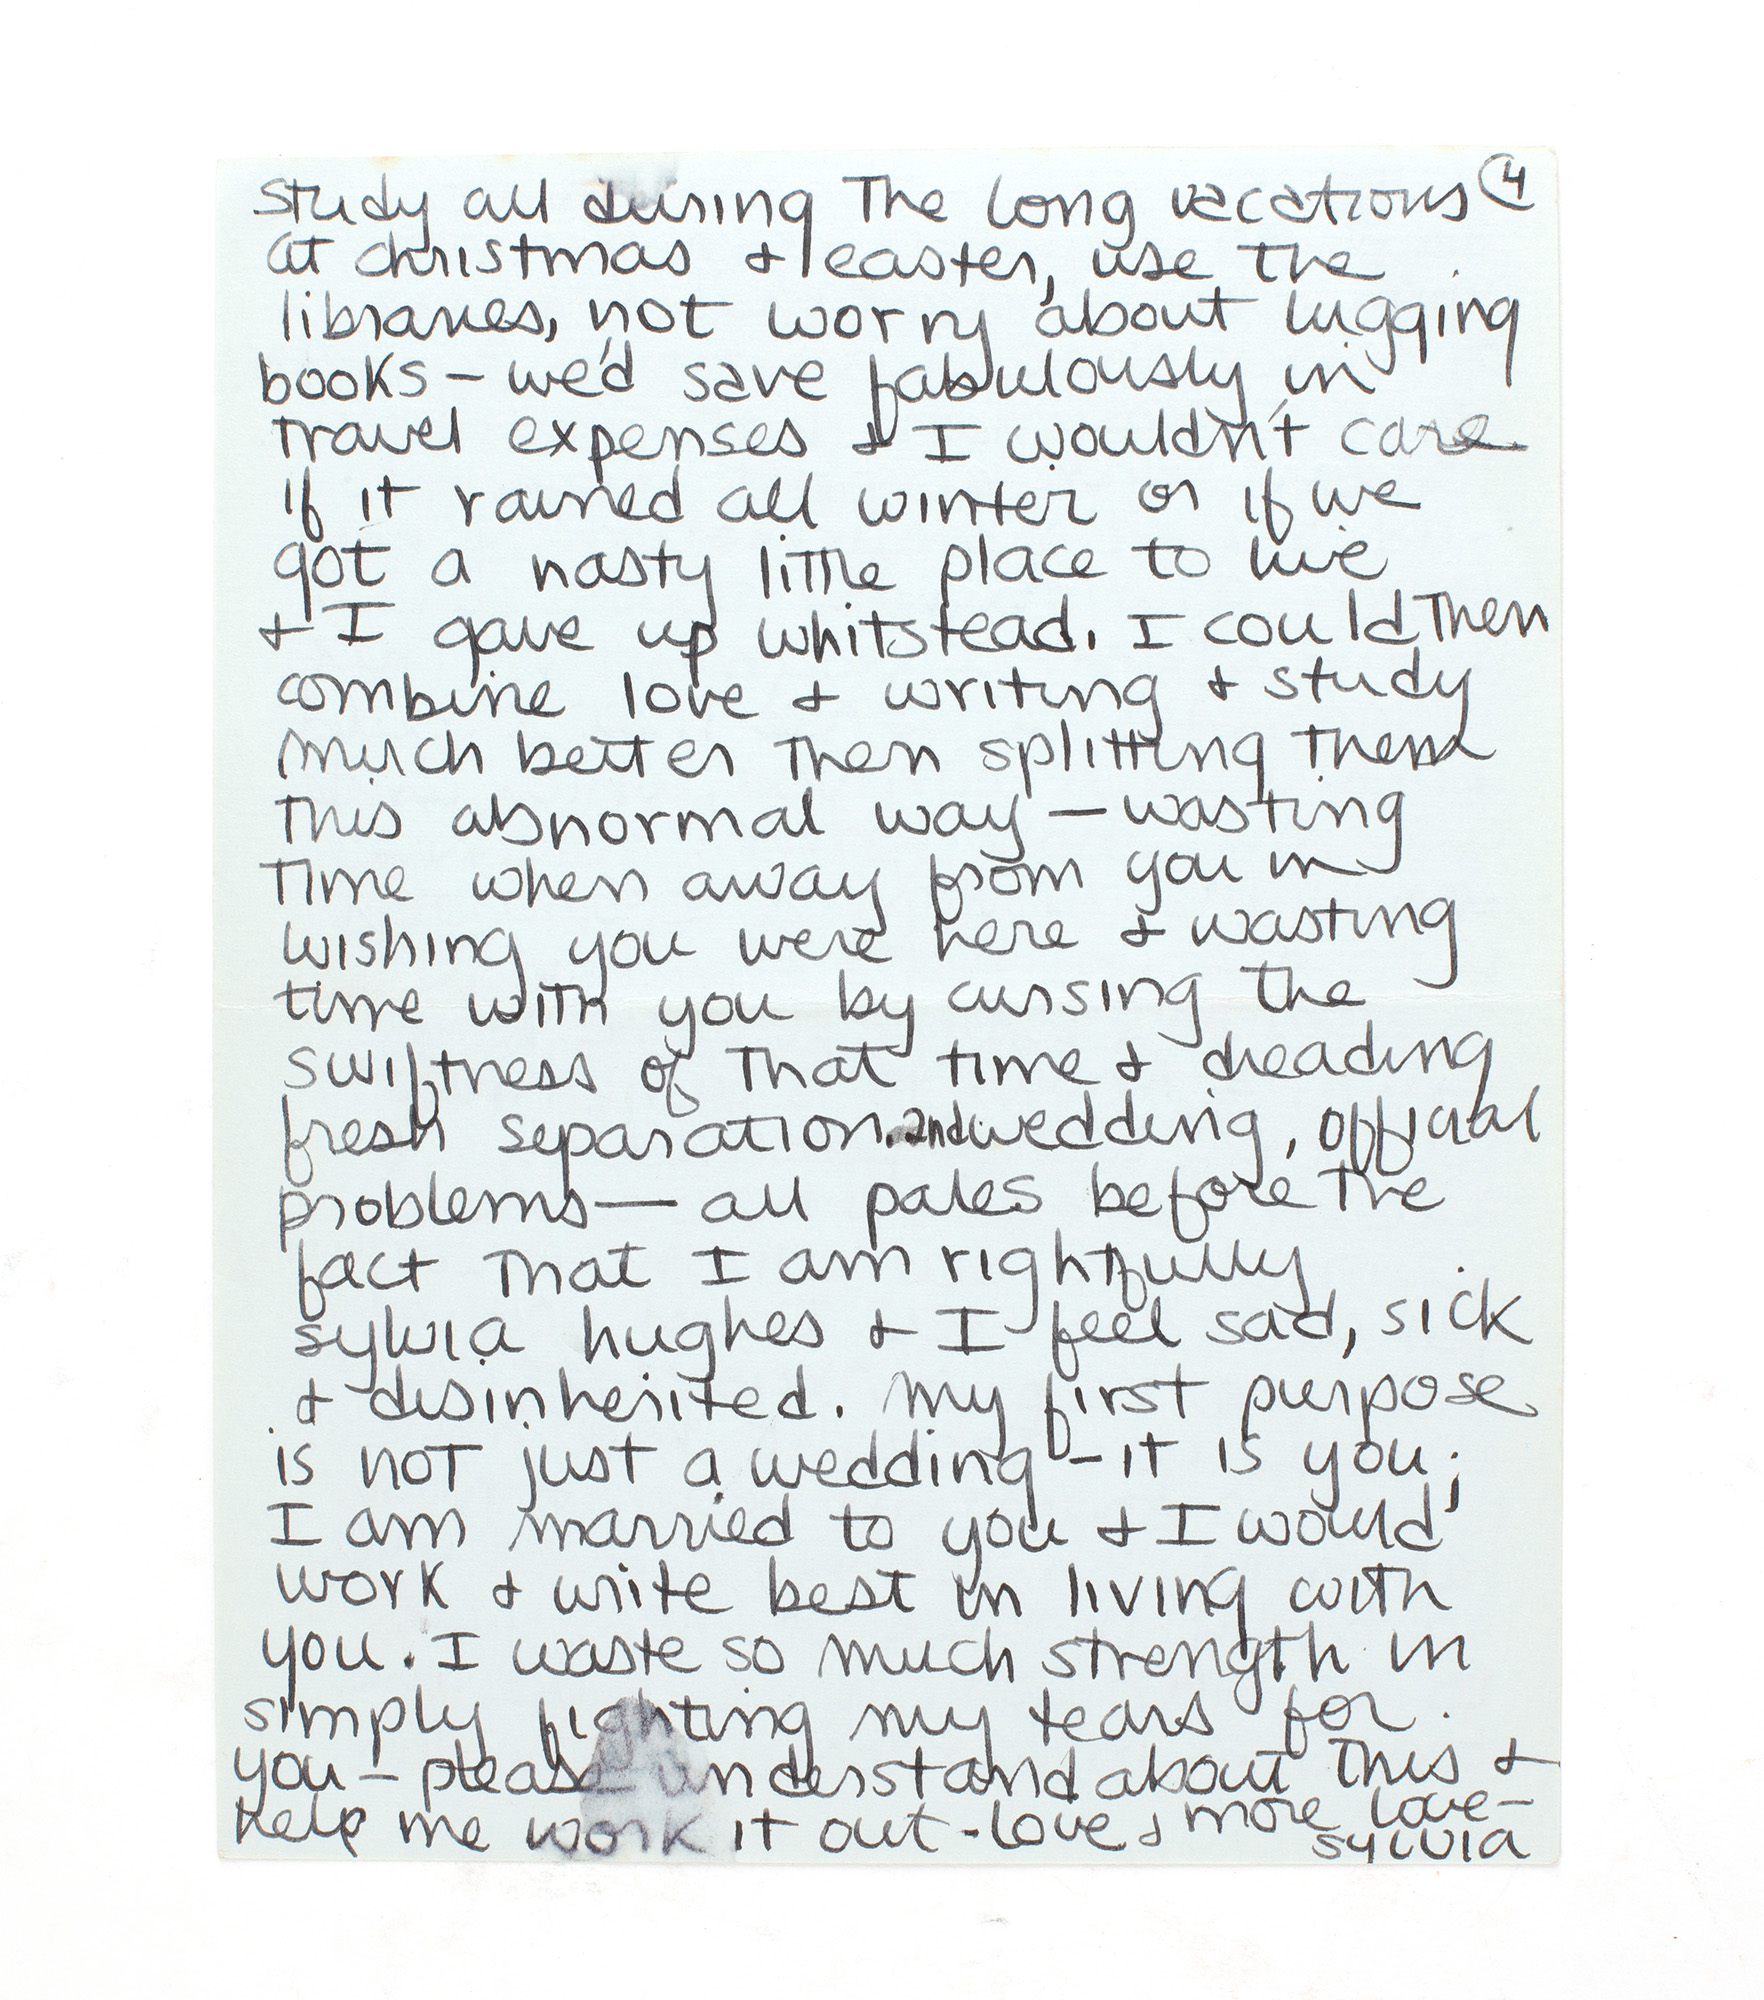 study all during the long vacations 4
at christmas & easter, use the
libraries, not worry about lugging
books - we'd save fabulously in
travel expenses & I wouldn't care
if it rained all winter or if we
got a nasty little place to live
& I gave up whitstead. I could then
combine love & writing & study
much better then splitting them
this abnormal way - wasting
time when away from you in
wishing you were here & wasting
time with you by cursing the
swiftness of that time & dreading
fresh separation. 2nd wedding, official
problems — all pales before the
fact that I am rightfully
sylvia hughes & I feel sad, sick
& disinherited. my first purpose
is not just a wedding - it is you;
I am married to you & I would
work & write best in living with
you. I waste so much strength in
simply fighting my tears for
you - please understand about this &
help me work it out - love & more love -
sylvia